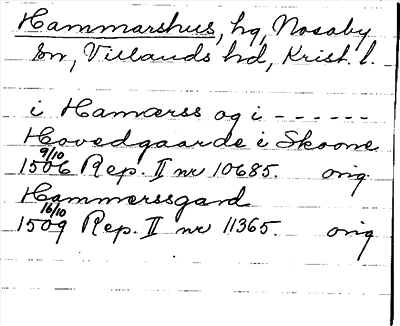 Hammarshus, hg, Nosaby
sn, Villands hd, Krist. l.
i Hamærss og i - - - - - -
Hovedgaarde i Skoone
9/10
1506 Rep. II nr 10685. orig.
Hammerssgard
16/10
1509 Rep. II nr 11365. orig